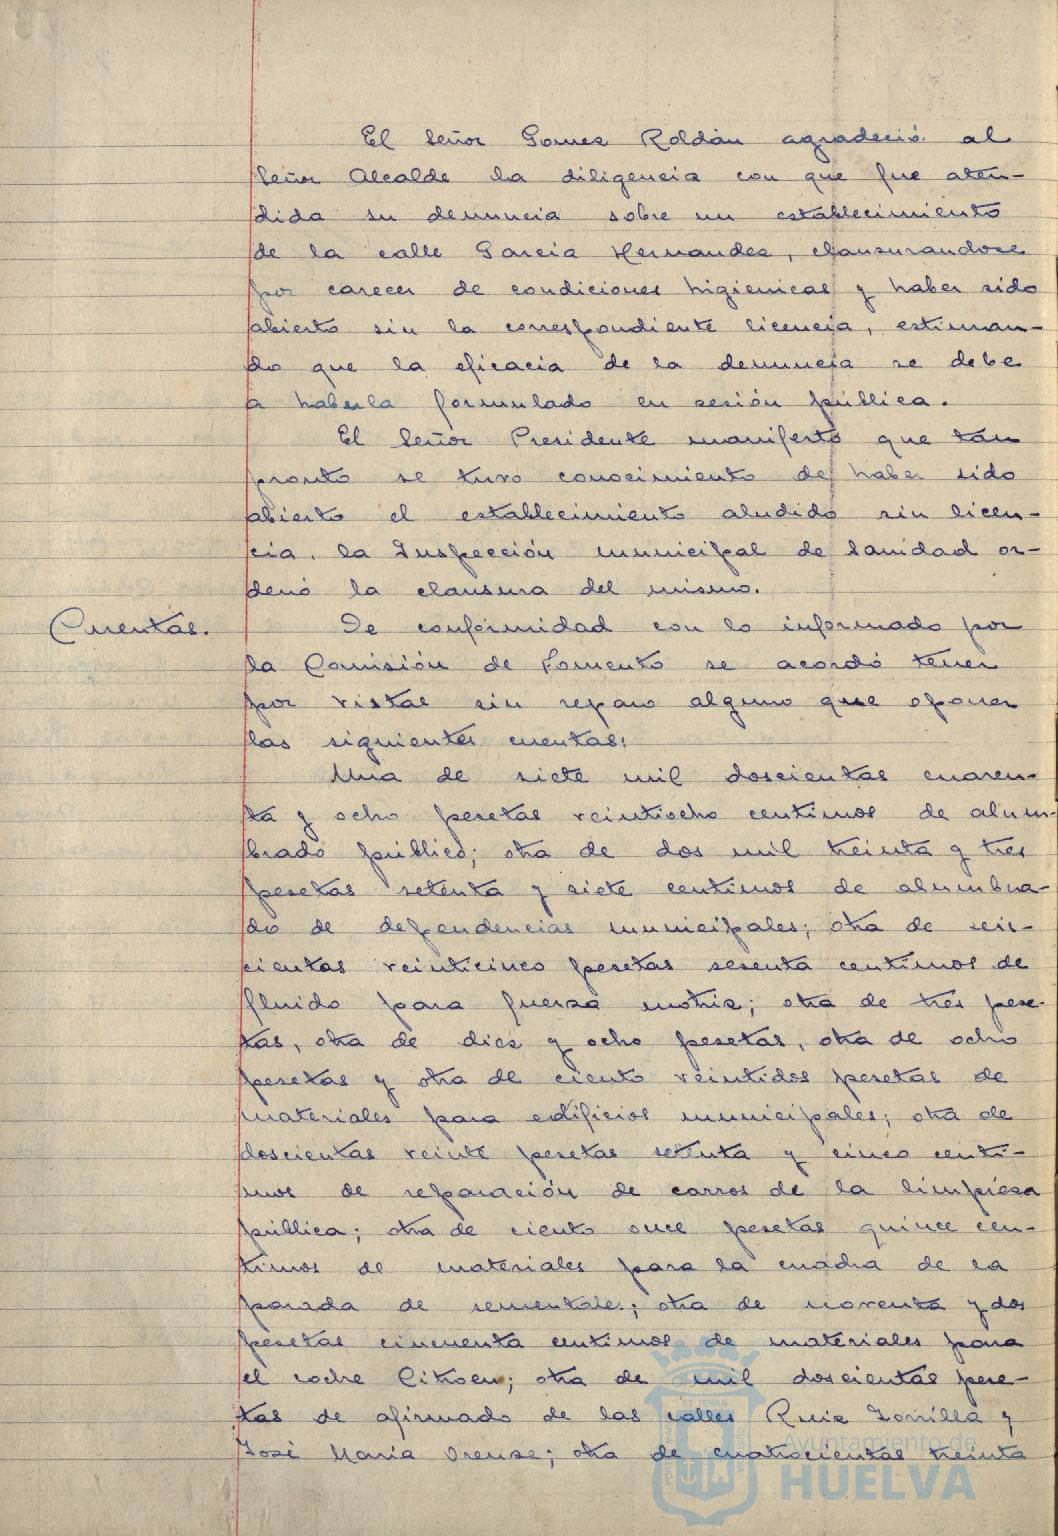 El Señor Gomez Roldán agradeció al
Señor Alcalde la diligencia con que fue aten-
dida su denuncia sobre un establecimiento
de la calle Garcia Hernandez, clausurandose
por carecer de condiciones higienicas y haber sido
abierto sin la correspondiente licencia, estiman-
do que la eficacia de la denuncia se debe
a haberla formulado en sesión pública.
El Señor Presidente manifestó que tan
pronto se tuvo conocimiento de haber sido
abierto el establecimiento aludido sin licen-
cia, la Inspección municipal de Sanidad or-
denó la clausura del mismo.
Cuentas.
De conformidad con lo informado por
la Comisión de Fomento se acordó tener
por vistas sin reparo alguno que oponer
las siguientes cuentas:
Una de siete mil doscientas cuaren-
ta y ocho pesetas veintiocho centimos de alum-
brado público; otra de dos mil treinta y tres
pesetas setenta y siete centimos de alumbra-
do de dependencias municipales; otra de seis-
cientas veinticinco pesetas sesenta centimos de
fluido para fuerza motriz; otra de tres pese-
tas, otra de diez y ocho pesetas, otra de ocho
pesetas y otra de ciento veintidos pesetas de
materiales para edificios municipales; otra de
doscientas veinte pesetas setenta y cinco centi-
mos de reparación de carros de la limpieza
pública; otra de ciento once pesetas quince cen-
timos de materiales para la cuadra de la
parada de sementales; otra de noventa y dos
pesetas cincuenta centimos de materiales para
el coche Citroen; otra de mil doscientas pese-
tas de afirmado de las calles Ruiz Zorrilla y
José María Orense; otra de cuatrocientas treinta
Ayuntamiento de
HUELVA